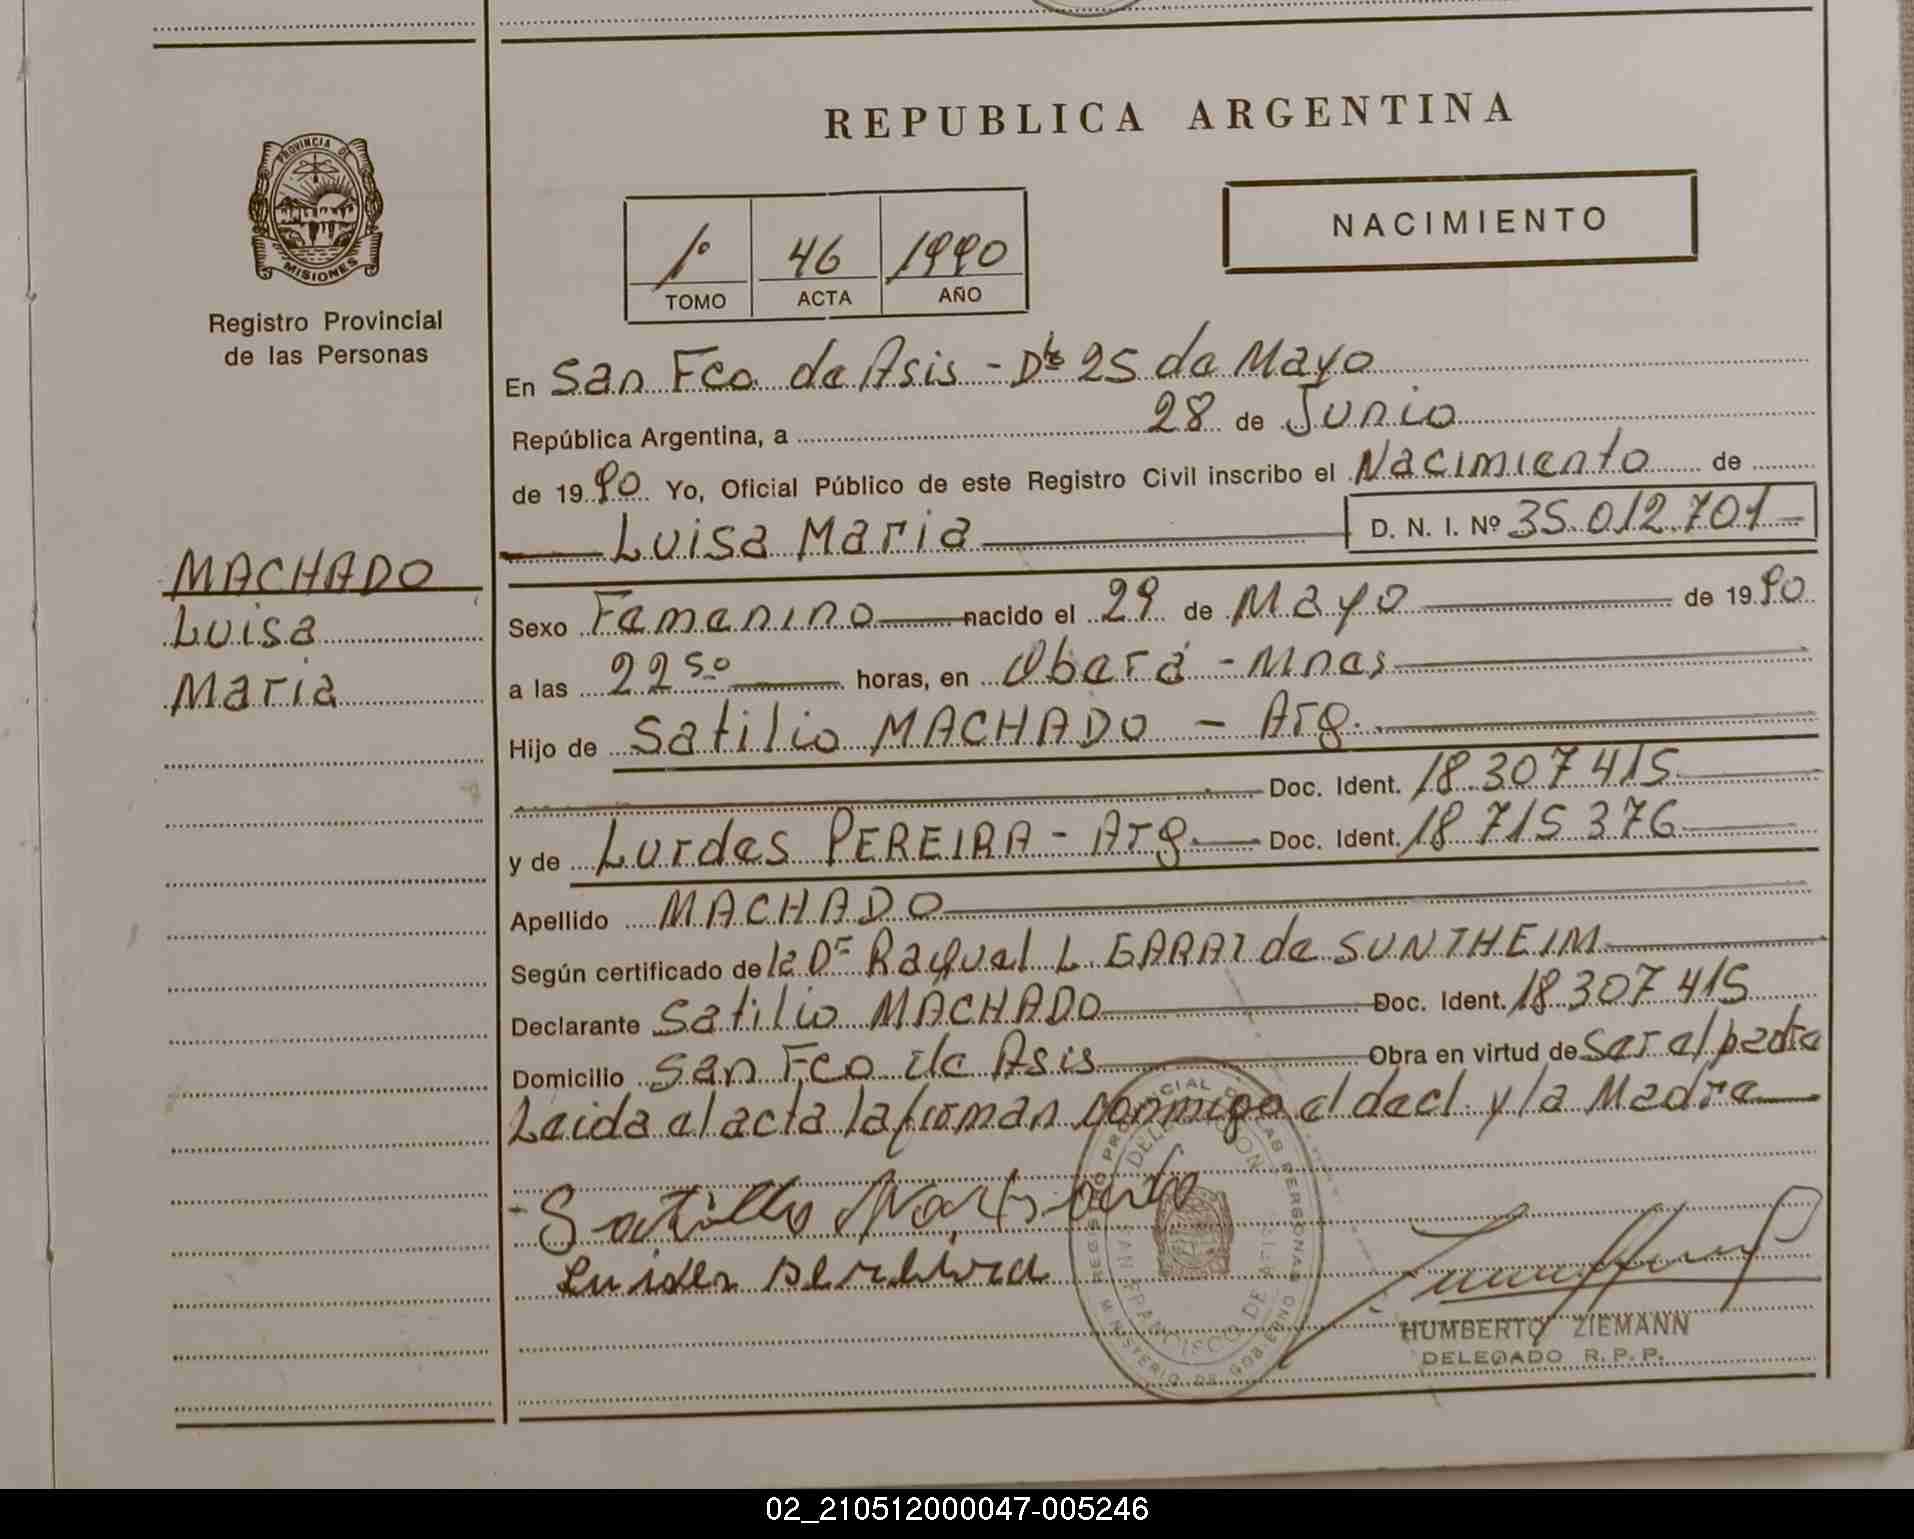 REPUBLICA ARGENTINA
PROVINCIA DE
MISIONES
Registro Provincial
de las Personas
NACIMIENTO
1º 46 1990
TOMO ACTA AÑO
En San Fco. de Asis - Dto 25 de Mayo
República Argentina, a 28 de Junio
de 19 90 Yo, Oficial Público de este Registro Civil inscribo el Nacimiento de
Luisa Maria D. N. I. Nº 35.012.701
MACHADO
Luisa
Maria
Sexo Femenino nacido el 29 de Mayo de 19 90
a las 22 50 horas, en Oberá - Mnes
Hijo de Satilio MACHADO - Arg.
Doc. Ident. 18 307 415
y de Lurdes PEREIRA - Arg Doc. Ident. 18 715 376
Apellido MACHADO
Según certificado de la Dra Raquel L GARAT de SUNTHEIM
Declarante Satilio MACHADO Doc. Ident. 18 307 415
Domicilio San Fco de Asis Obra en virtud de ser el padre
Leida el acta la firman conmigo el decl. y la Madre
REGISTRO PROVINCIAL DE LAS PERSONAS
DELEGACION
FRANCISCO DE ASIS
MINISTERIO DE GOBIERNO
HUMBERTO ZIEMANN
DELEGADO R.P.P.
02_210512000047-005246